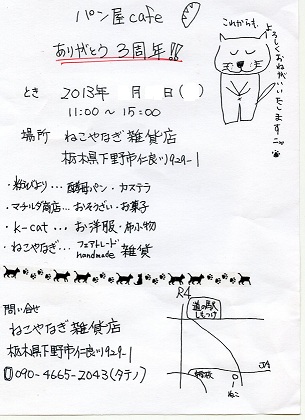 パン屋cafe
ありがとう 3周年!!
これからも
よろしくおねがいいたしますニャ
とき 2013年 月 日( )
11:00 ～ 15:00
場所 ねこやなぎ雑貨店
栃木県下野市仁良川929-1
・粉びより… 酵母パン・カステラ
・マチルダ商店… おそうざい・お菓子
・k-cat… お洋服・布小物
・ねこやなぎ… フェアトレード handmade 雑貨
問い合せ
ねこやなぎ雑貨店
栃木県下野市仁良川929-1
090-4665-2043(タテノ)
R4
道の駅
しもつけ
JA
ねこ